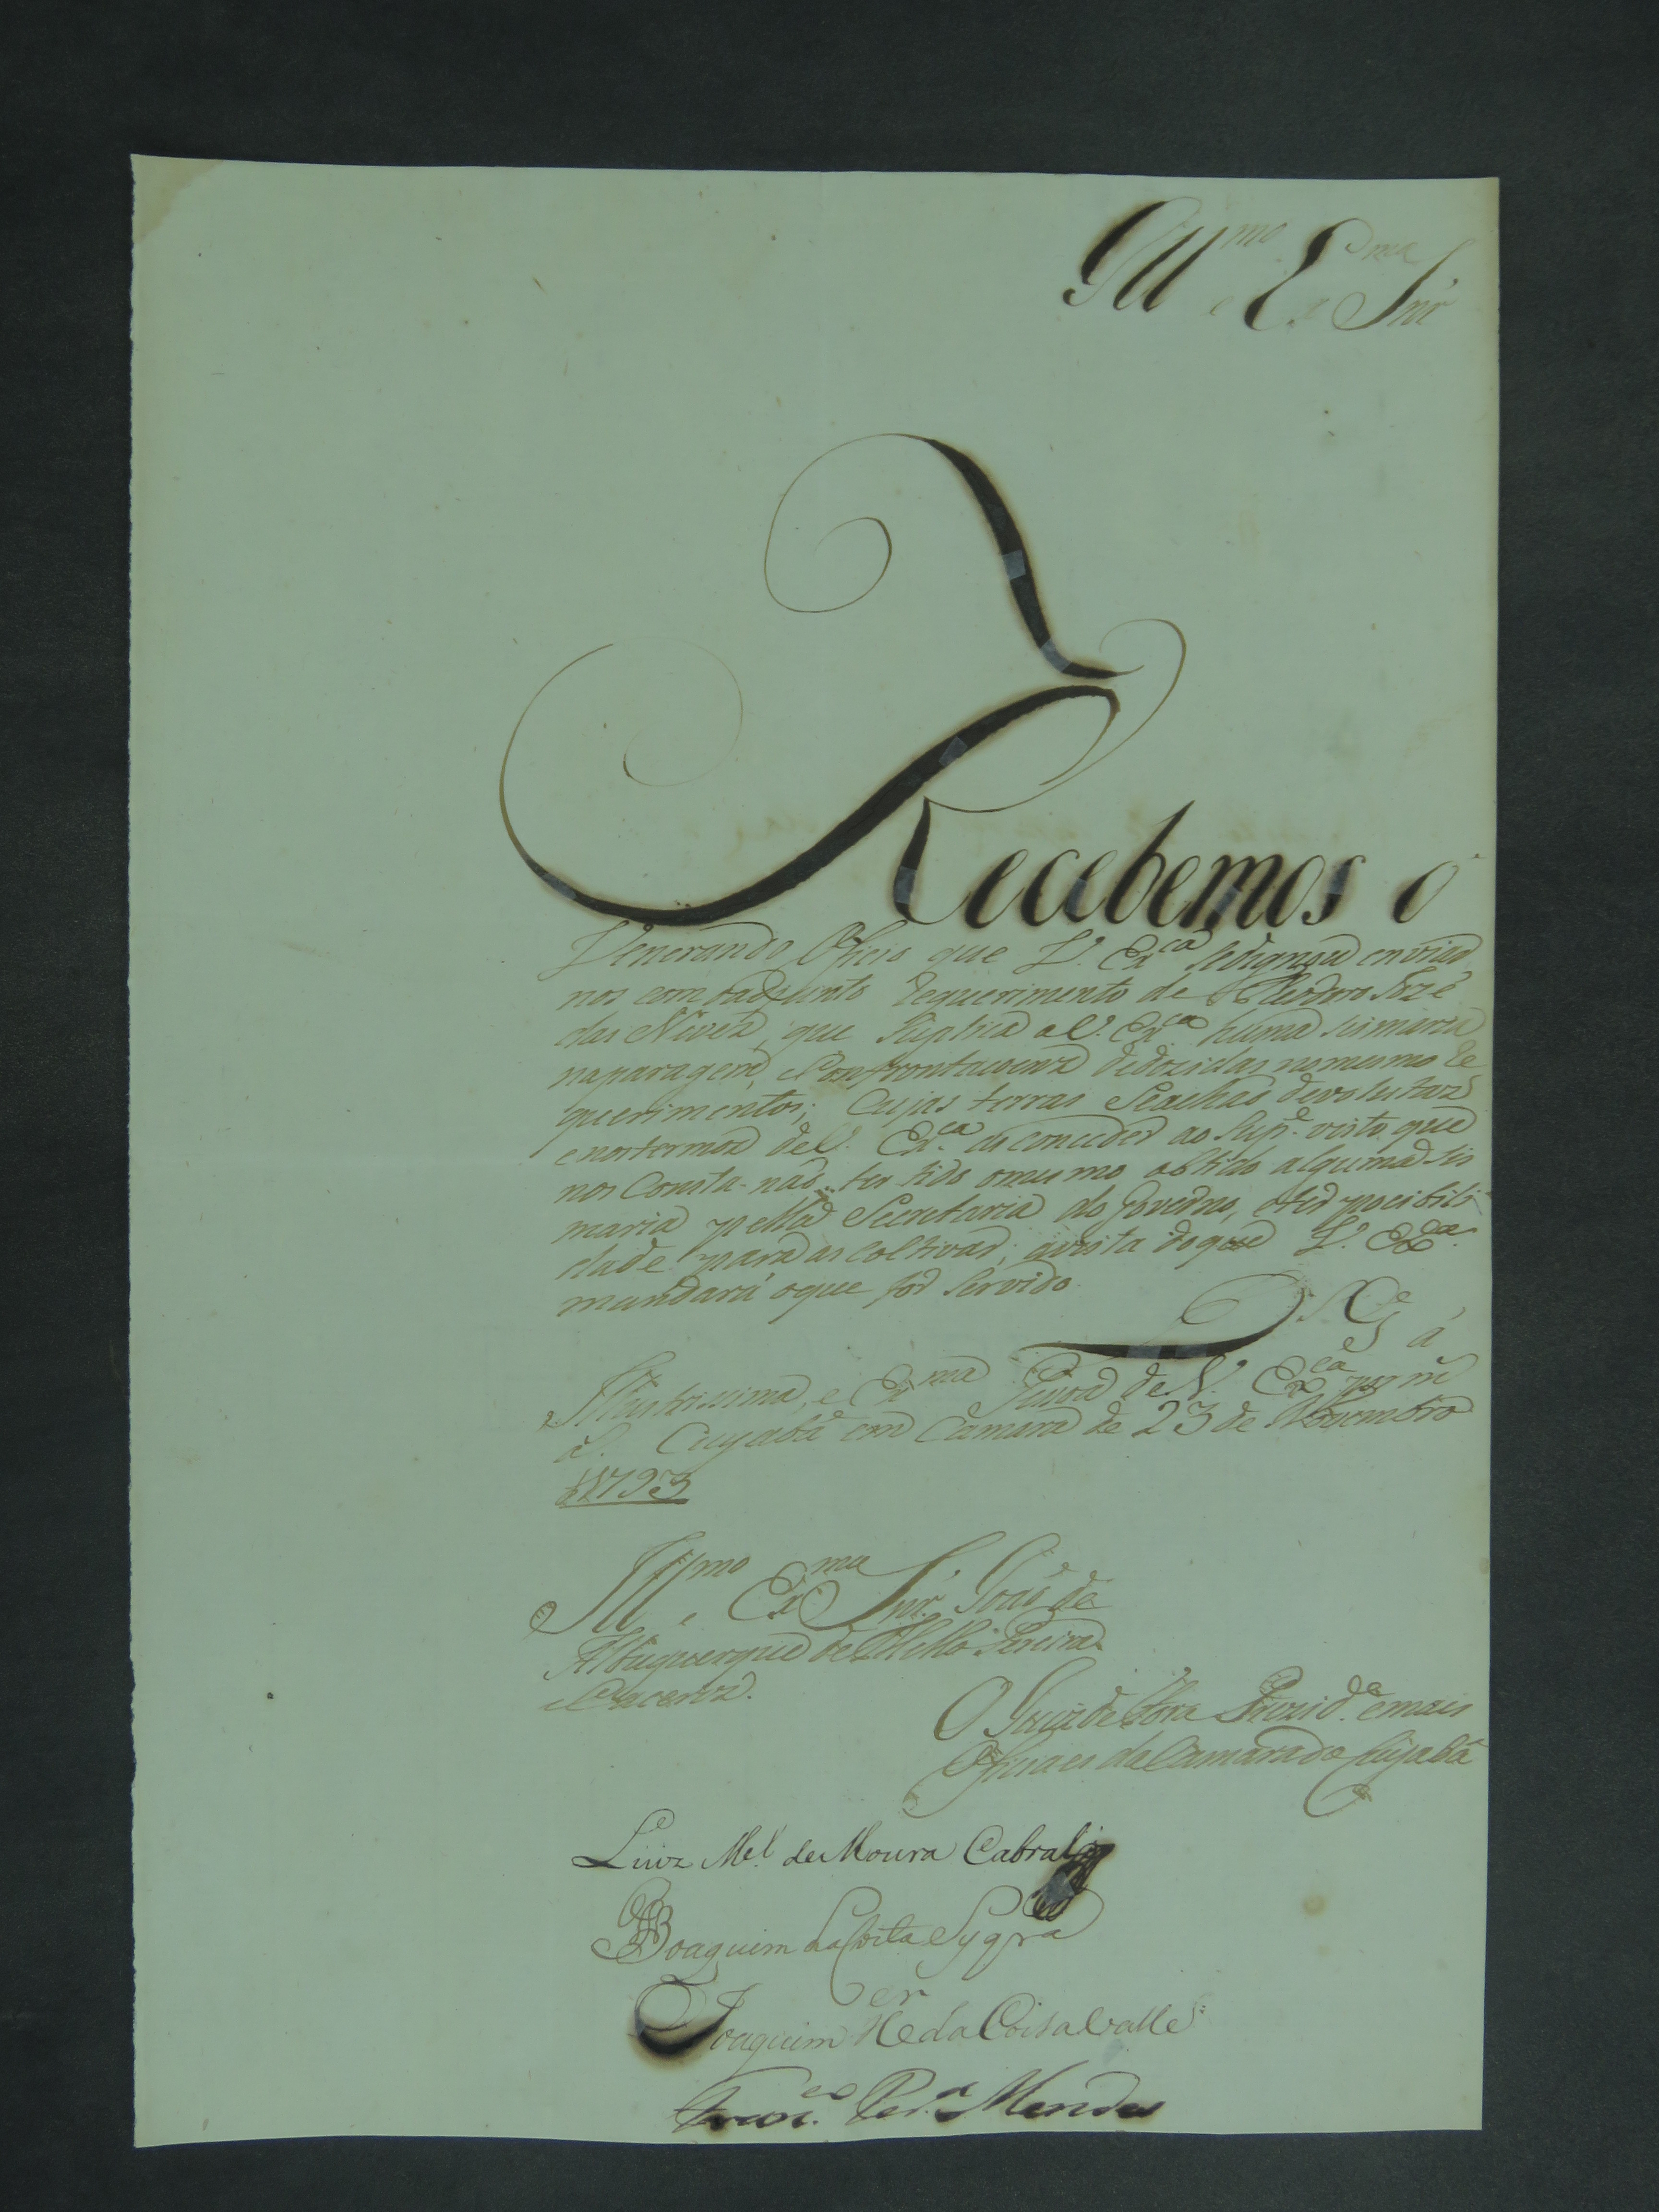 Ill.mo e Ex.mo Snr
Recebemos o
Venerando Officio que V. Ex.ca sedignou enviar
nos com oadjunto Requerimento de Theodoro Jozé
das Nives, que Suplica a V. Ex.ca huma sismaria
naparagem, eConfrontaçoens dedozidas nomesmo Re
querimentos; Cujas terras Seachão devolutas
enostermos deV. Ex.ca as conceder ao Sup.e visto que
nos Consta não ter tido omesmo obtido alguma Sis
maria pella Secretaria do Governo, eter pocibili
dade para as coltivar; avista doque V. Ex.ca
mandará oque for Servido.
D.s G.e á
Illustrissima, e Ex.ma Pessoa de V. Ex.ca por m.s
a.s Cuyabá em Camara de 23 de Novembro
de 1793
Ill.mo e Ex.mo Snr. João de
Albuquerque de Mello Pereira
eCaceres.
O Juiz de Fora Prezid.e emais
Officiaes da Camara do Cuyabá
Luiz M.el de Moura Cabral
Joaquim da Costa Syqr.a
Joaquim da Costa
Fran.co Per.a Mendes